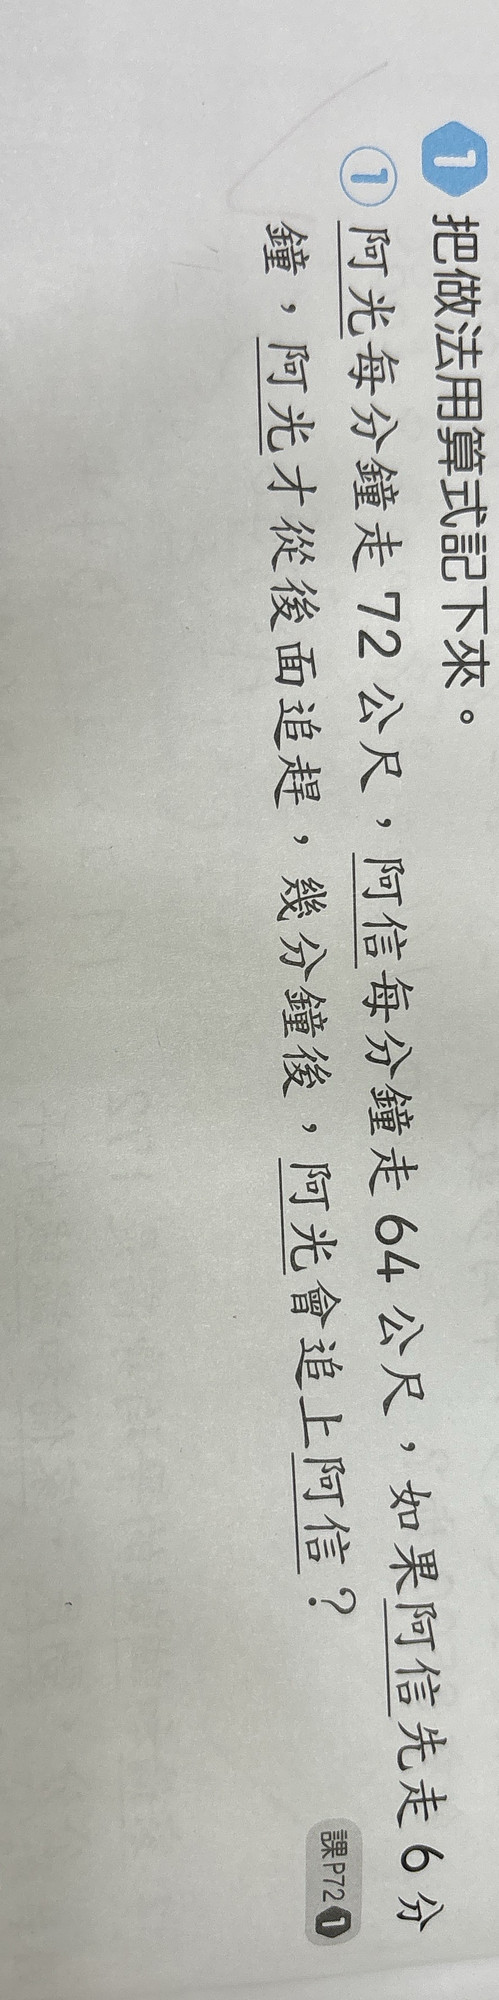 1 把做法用算式記下來。
① 阿光每分鐘走72公尺，阿信每分鐘走64公尺，如果阿信先走6分
鐘，阿光才從後面追趕，幾分鐘後，阿光會追上阿信？
課P72 1